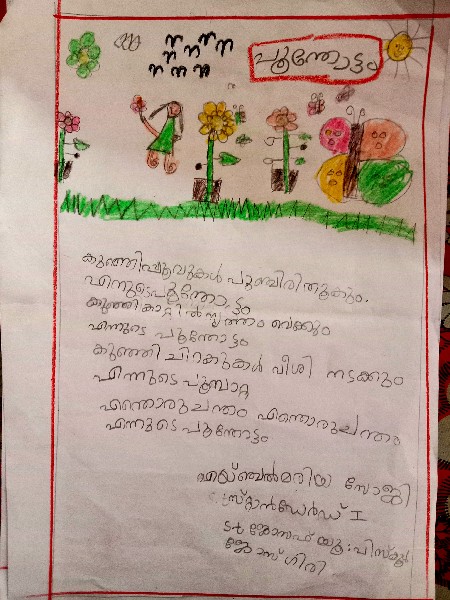 പൂന്തോട്ടം
കുഞ്ഞിപ്പൂവുകൾ പുഞ്ചിരിതൂകും.
എന്നുടെപൂന്തോട്ടം
കുഞ്ഞികാറ്റിൽ നൃത്തം വെക്കും
എന്നുടെ പൂന്തോട്ടം
കുഞ്ഞി ചിറകുകൾ വീശി നടക്കും
എന്നുടെ പൂമ്പാറ്റ
എന്തൊരുചന്തം എന്തൊരുചന്തം
എന്നുടെ പൂന്തോട്ടം
എയ്ഞ്ചൽമരിയ സോജി
സ്റ്റാൻഡേർഡ് I
സെന്റ് ജോസഫ് യു:പിസ്കൂൾ
ജോസ്ഗിരി